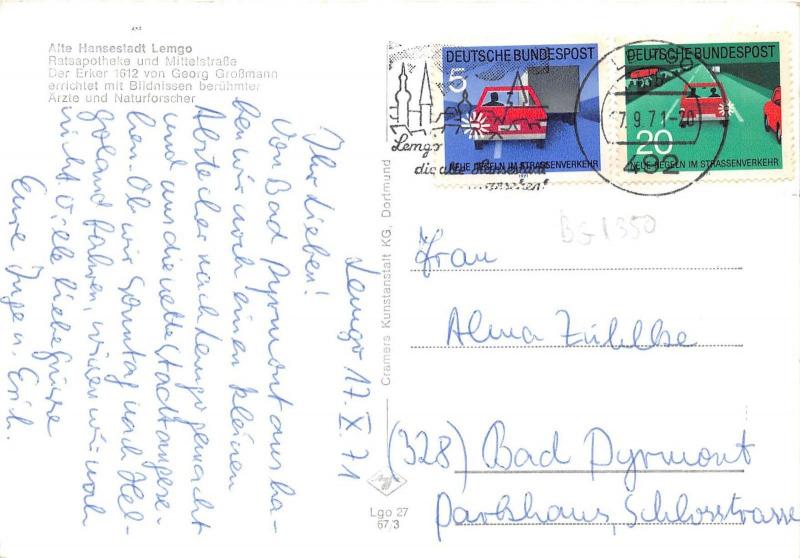 Alte Hansestadt Lemgo
Ratsapotheke und Mittelstraße
Der Erker 1612 von Georg Großmann
errichtet mit Bildnissen berühmter
Ärzte und Naturforscher
Lemgo 17. X. 71
Ihr Lieben!
Von Bad Pyrmont aus ha-
ben wir noch einen kleinen
Abstecher nach Lemgo gemacht
und uns die nette Stadt angese-
hen. Ob wir Sonntag nach Hel-
goland fahren, wissen wir noch
nicht. Viele liebe Grüsse
Eure Inge u. Erich.
Cramers Kunstanstalt KG, Dortmund
Lgo 27
67/3
DEUTSCHE BUNDESPOST
5
NEUE REGELN IM STRASSENVERKEHR
DEUTSCHE BUNDESPOST
20
NEUE REGELN IM STRASSENVERKEHR
Lemgo
die alte Hansestadt
17.9.71-20
492
BG1350
Frau
Alma Zühlke
(328) Bad Pyrmont
Parkhaus, Schlosstrasse